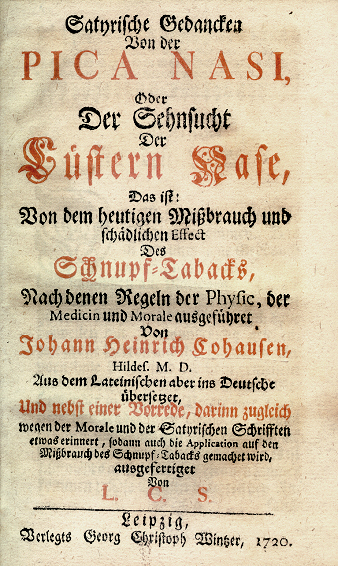 Satyrische Gedancken
Von der
PICA NASI,
Oder
Der Sehnsucht
Der
Lüstern Nase,
Das ist:
Von dem heutigen Mißbrauch und
schädlichen Effect
Des
Schnupf-Tabacks,
Nach denen Regeln der Physic, der
Medicin und Morale ausgeführet
Von
Johann Heinrich Cohausen,
Hildes. M. D.
Aus dem Lateinischen aber ins Deutsche
übersetzet,
Und nebst einer Vorrede, darinn zugleich
wegen der Morale und der Satyrischen Schrifften
etwas erinnert, sodann auch die Application auf den
Mißbrauch des Schnupf-Tabacks gemachet wird,
ausgefertiget
Von
L. C. S.
Leipzig,
Verlegts Georg Christoph Wintzer, 1720.